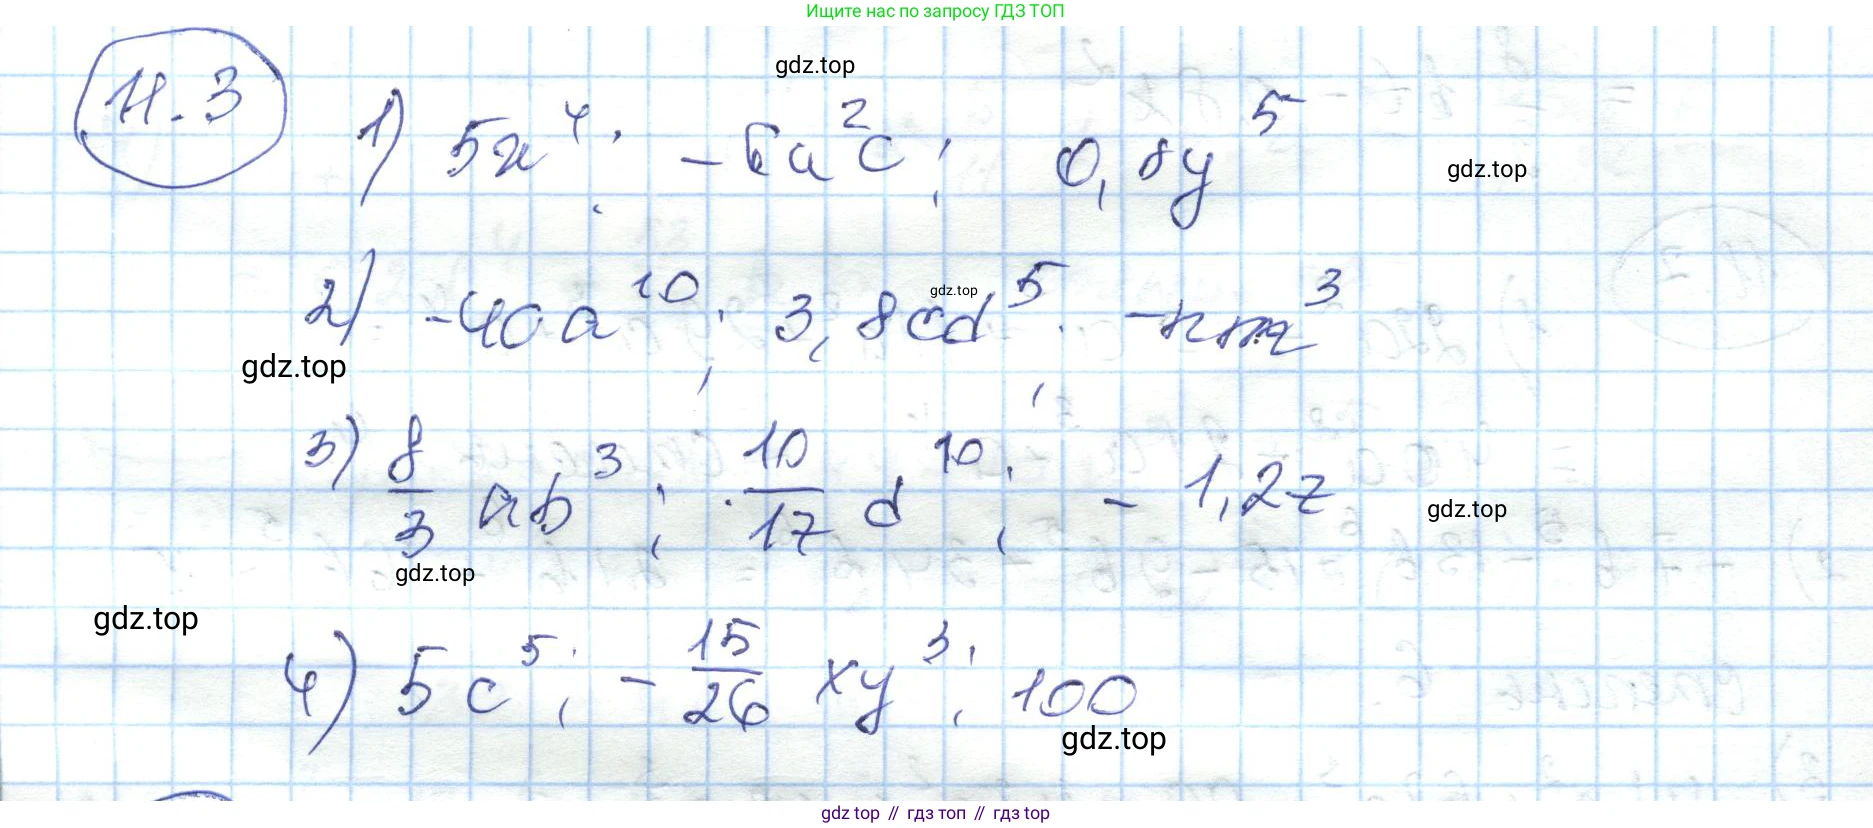 Ищите нас по запросу ГДЗ ТОП
gdz.top
11.3
1) 5x⁴; -6a²c; 0,8y⁵
gdz.top
2) -40a¹⁰; 3,8cd⁵; -nm³
gdz.top
gdz.top
3) 8/3 ab³; 10/17 d¹⁰; -1,2z
gdz.top
gdz.top
gdz.top
4) 5c⁵; -15/26 xy³; 100
gdz.top
gdz.top // гдз топ // гдз top